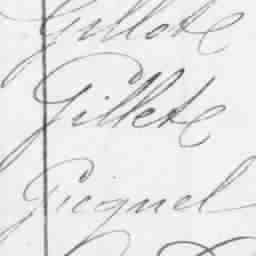 Gillot
Gillet
Gicquel